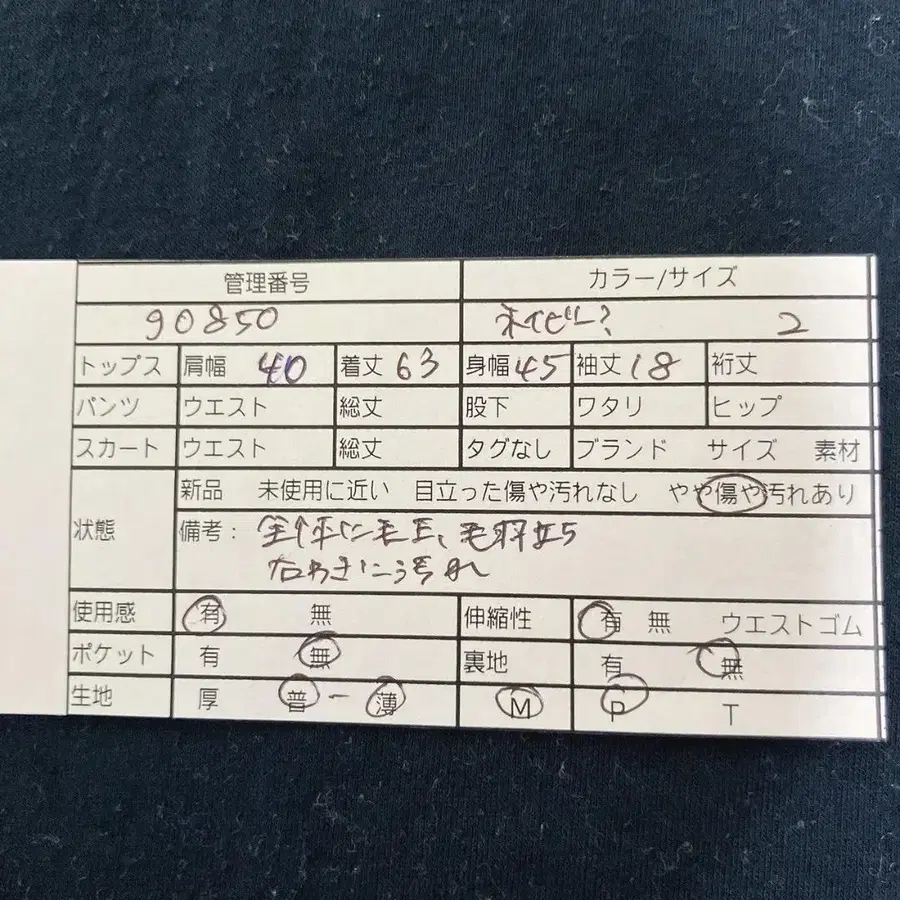 管理番号 カラー/サイズ
90850 ネイビー? 2
トップス 肩幅 40 着丈 63 身幅 45 袖丈 18 裄丈
パンツ ウエスト 総丈 股下 ワタリ ヒップ
スカート ウエスト 総丈 タグなし ブランド サイズ 素材
新品 未使用に近い 目立った傷や汚れなし やや傷や汚れあり
状態 備考: 全体に毛玉、毛羽立ち
右わきに汚れ
使用感 有 無 伸縮性 有 無 ウエストゴム
ポケット 有 無 裏地 有 無
生地 厚 普 ー 薄 M P T